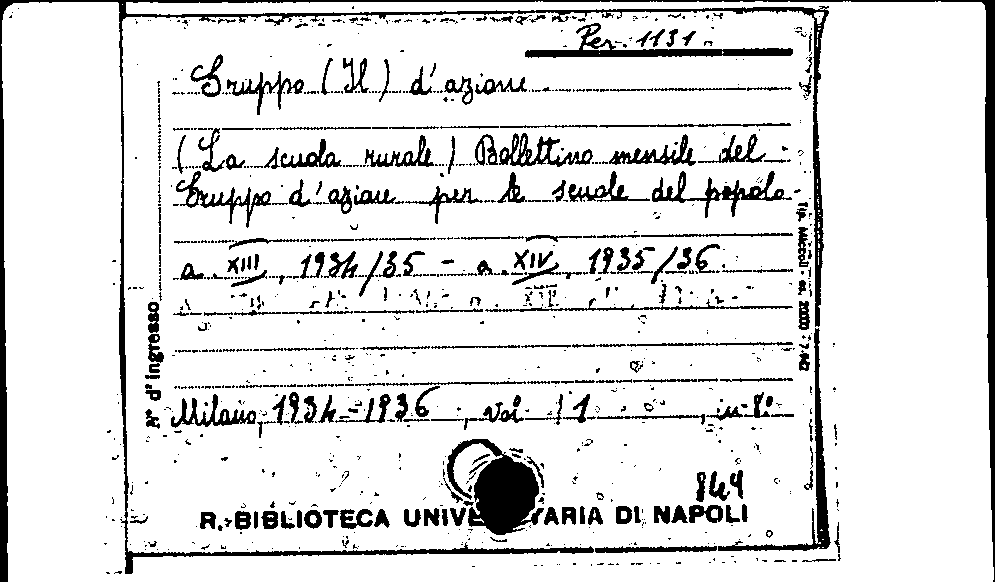 Per. 1131.
Gruppo (Il) d'azione.
(La scuola rurale) Bollettino mensile del
Gruppo d'azione per le scuole del popolo.
a. XIII, 1934/35 - a. XIV, 1935/36.
Milano, 1934-1936, vol. 1, in-8°
844
R. BIBLIOTECA UNIVE TARIA DI NAPOLI
N° d'ingresso